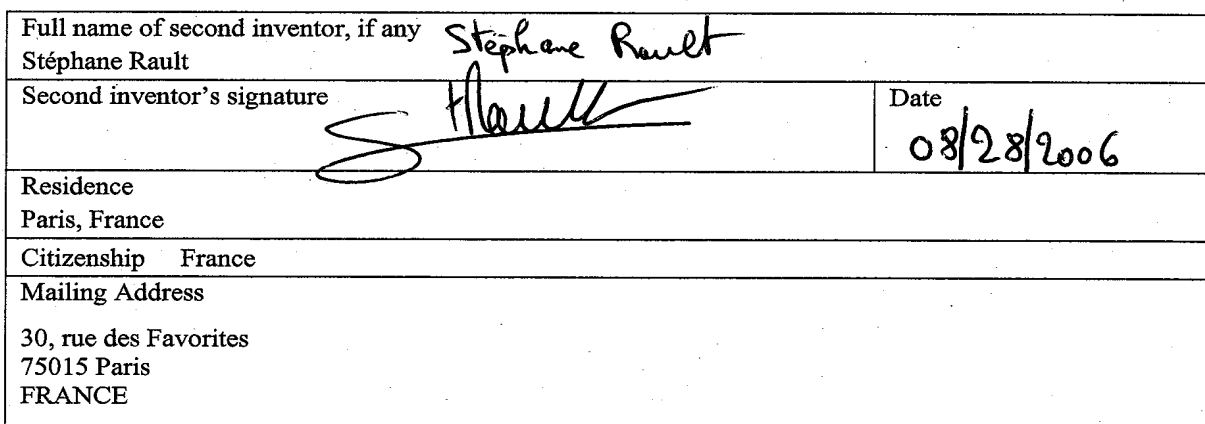 Full name of second inventor, if any Stéphane Rault
Stéphane Rault
Second inventor's signature
Date
08/28/2006
Residence
Paris, France
Citizenship France
Mailing Address
30, rue des Favorites
75015 Paris
FRANCE